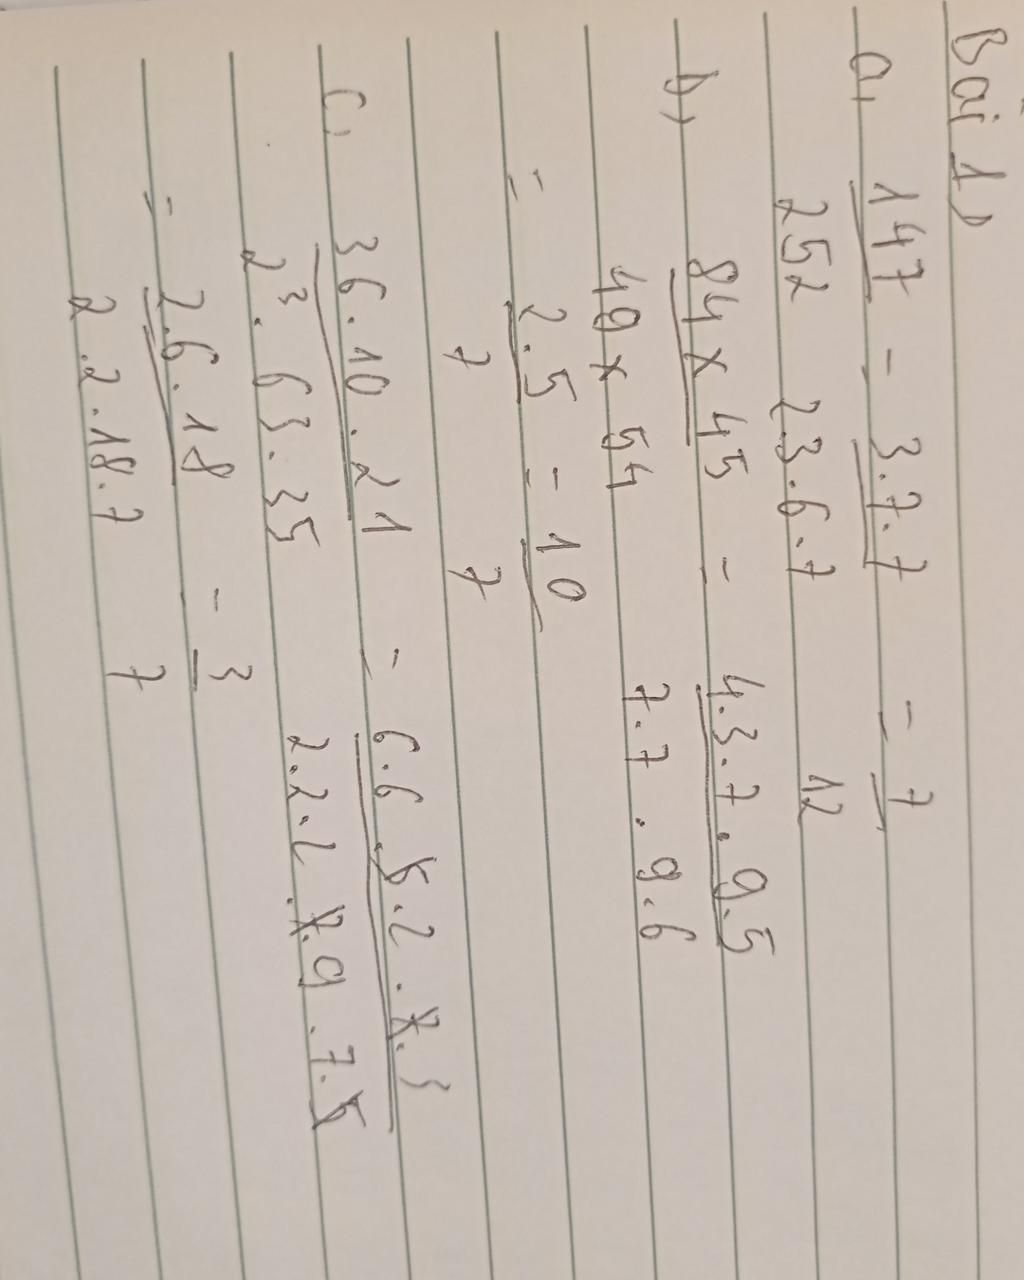 Bài 1)
a, 147/252 = 3.7.7/2.3.6.7 = 7/12
b, 84 x 45/49 x 54 = 4.3.7.9.5/7.7.9.6
= 2.5/7 = 10/7
c, 36.10.21/2³.63.35 = 6.6.5.2.7.3/2.2.2.7.9.7.5
= 2.6.18/2.2.18.7 = 3/7